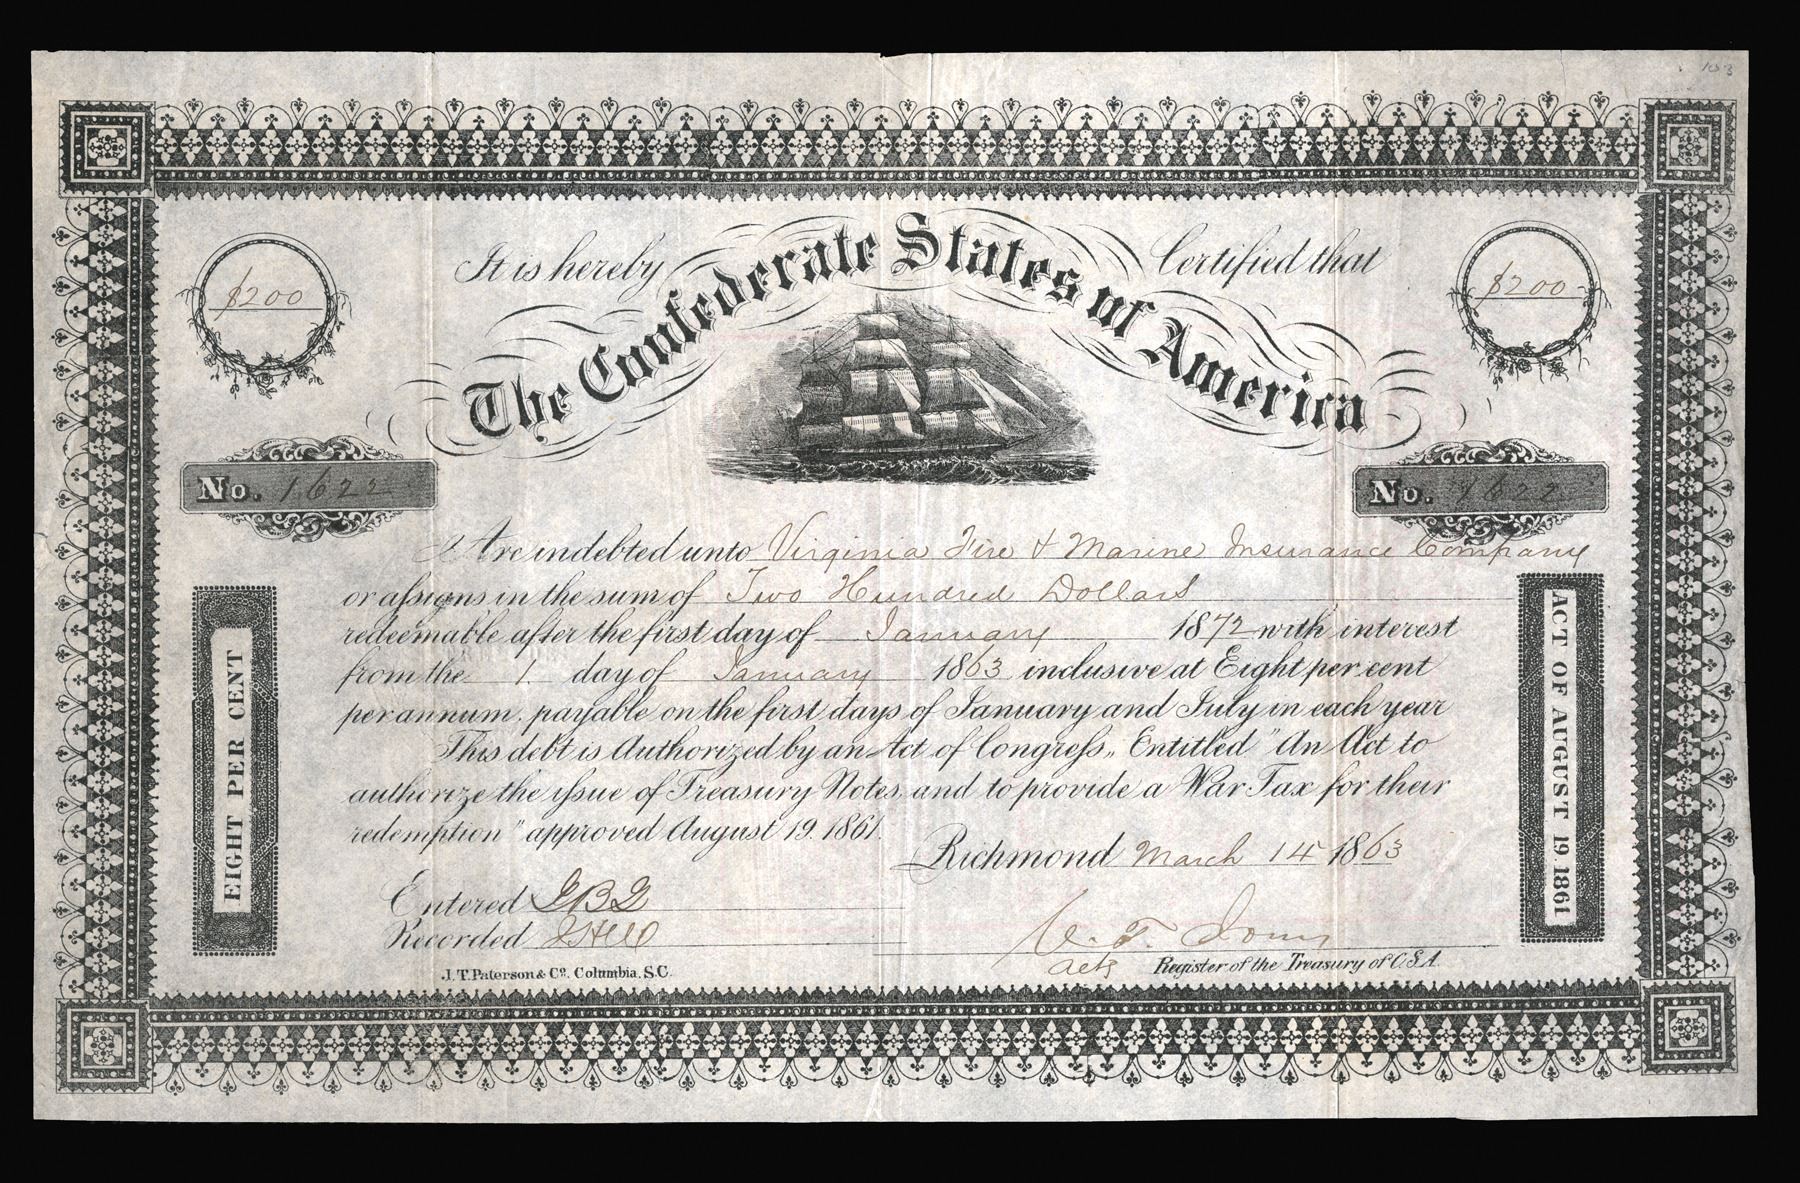 103
It is hereby Certified that
The Confederate States of America
$200
$200
No. 1622
No. 1622
Are indebted unto Virginia Fire & Marine Insurance Company
or assigns in the sum of Two Hundred Dollars
redeemable after the first day of January 1872 with interest
from the 1 day of January 1863 inclusive at Eight per cent
per annum, payable on the first days of January and July in each year
This debt is Authorized by an Act of Congress, Entitled "An Act to
authorize the issue of Treasury Notes, and to provide a War Tax for their
redemption" approved August 19, 1861.
Richmond March 14 1863
EIGHT PER CENT
ACT OF AUGUST 19 1861
Entered
Recorded
J.T. Paterson & Co. Columbia, S.C.
Register of the Treasury of C.S.A.